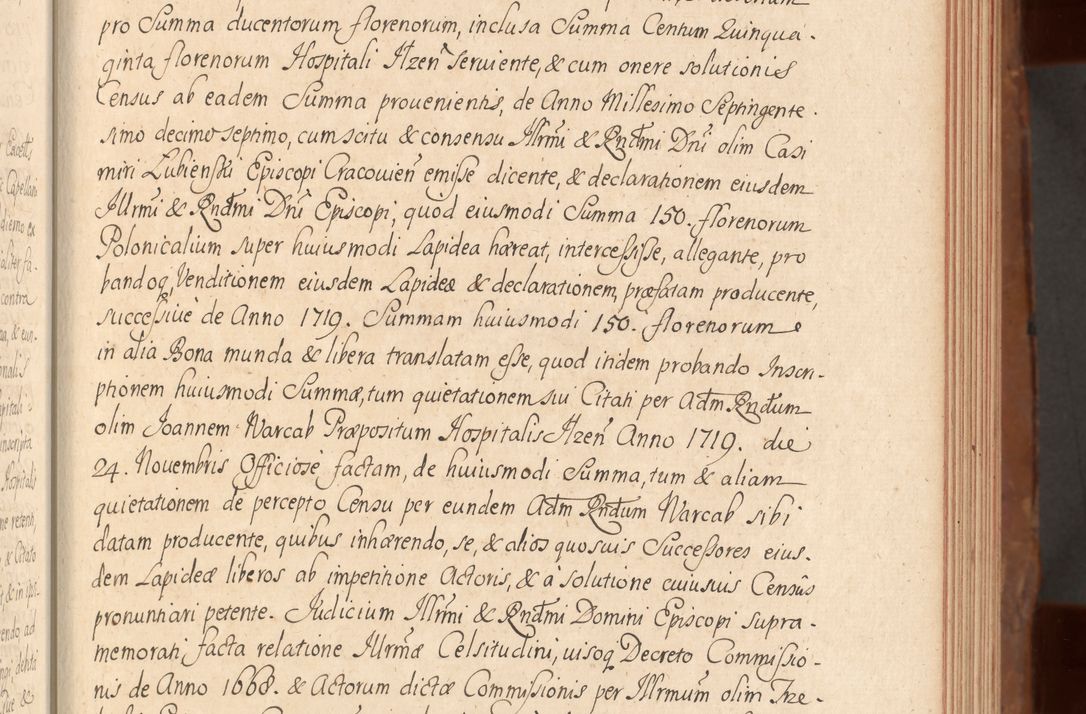 pro Summa ducentorum florenorum, inclusa Summa Centum Quinqua-
ginta florenorum Hospitali Ilzeñ seruiente, & cum onere solutionis
Census ab eadem Summa prouenientis, de Anno Millesimo Septingente-
simo decimo septimo, cum scitu & consensu Illrmi & Rndmi Dni olim Casi
miri Łubieński Episcopi Cracouieñ emisse dicente, & declarationem eiusdem
Illrmi & Rndmi Dni Episcopi, quod eiusmodi Summa 150. florenorum
Polonicalium super huiusmodi Lapidea hæreat, intercessisse, allegante, pro
bandoq, Venditionem eiusdem Lapideæ & declarationem, præfatam producente,
successiuè de Anno 1719. Summam huiusmodi 150. florenorum
in alia Bona munda & libera translatam esse, quod itidem probando Inscri-
ptionem huiusmodi Summæ, tum quietationem sui Citati per Adm Rndum
olim Joannem Warcab Præpositum Hospitalis Ilzeñ Anno 1719. die
24. Nouembris Officiosè factam, de huiusmodi Summa, tum & aliam
quietationem de percepto Censu per eundem Adm Rndum Warcab sibi
datam producente, quibus inhærendo, se, & alios quosuis Successores eius-
dem Lapideæ liberos ab impetitione Actoris, & a solutione cuiusuis Censûs
pronuntiari petente. Judicium Illrmi & Rndmi Domini Episcopi supra-
memorati, facta relatione Illrmæ Celsitudini, uisoq Decreto Commissio-
nis de Anno 1668. & Actorum dictæ Commissionis per Illrmum olim Trze-